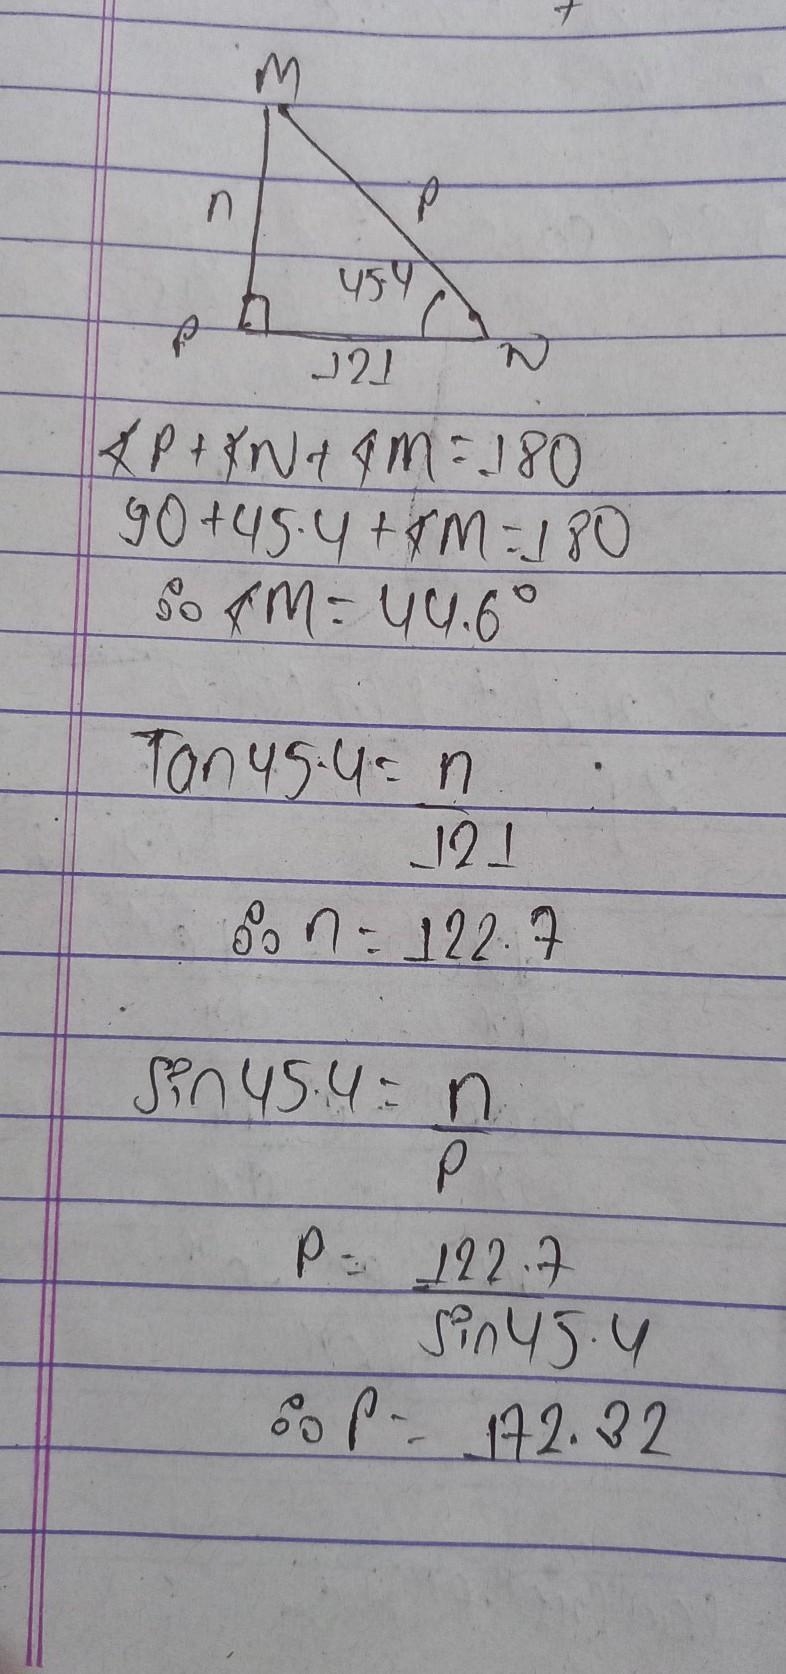 M
n
P
45.4
P
121
N
∢P+∢N+∢M=180
90+45.4+∢M=180
∴ ∢M=44.6°
Tan45.4= n
121
∴ n= 122.7
sin45.4= n
P
P= 122.7
sin45.4
∴ P= 172.32